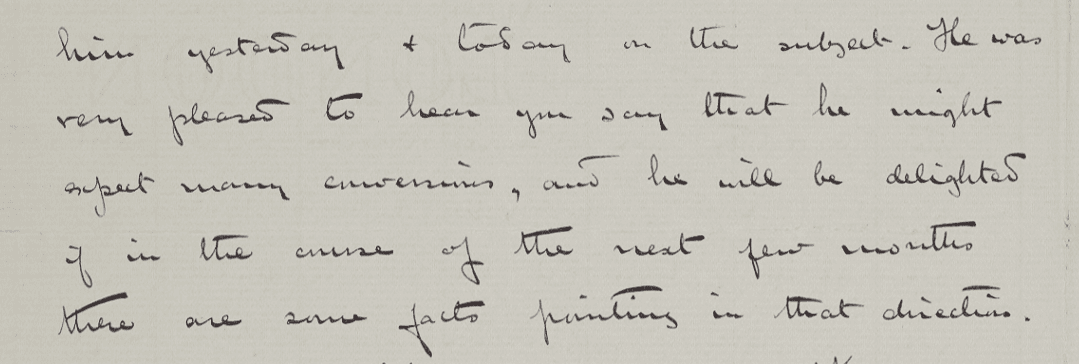 him yesterday & today on the subject. He was
very pleased to hear you say that he might
expect many conversions, and he will be delighted
if in the course of the next few months
there are some facts pointing in that direction.